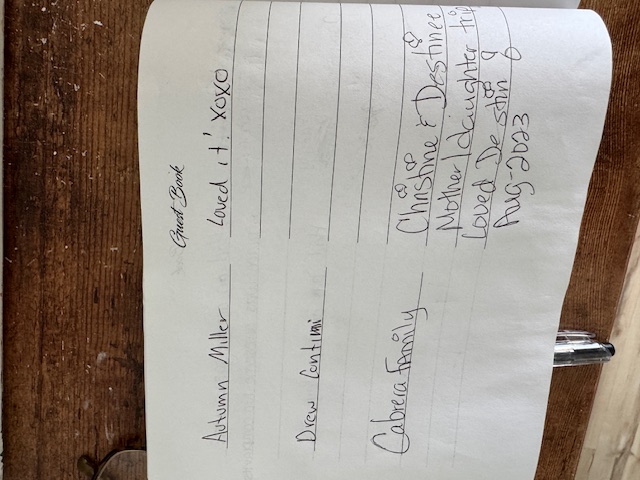 Guest Book
Autumn Miller Loved it! XOXO
Drew Contini
Cabrera Family Christine & Destinee
Mother/daughter trip
Loved Destin
Aug-2023